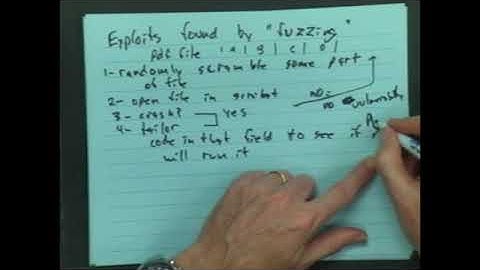 Exploits found by "fuzzing"
pdf file | a | g | c | 0 |
1- randomly scramble some part
of file
2- open file in acrobat
no =
no vulnerability
3- crash? yes
4- tailor
code in that field to see if
will run it